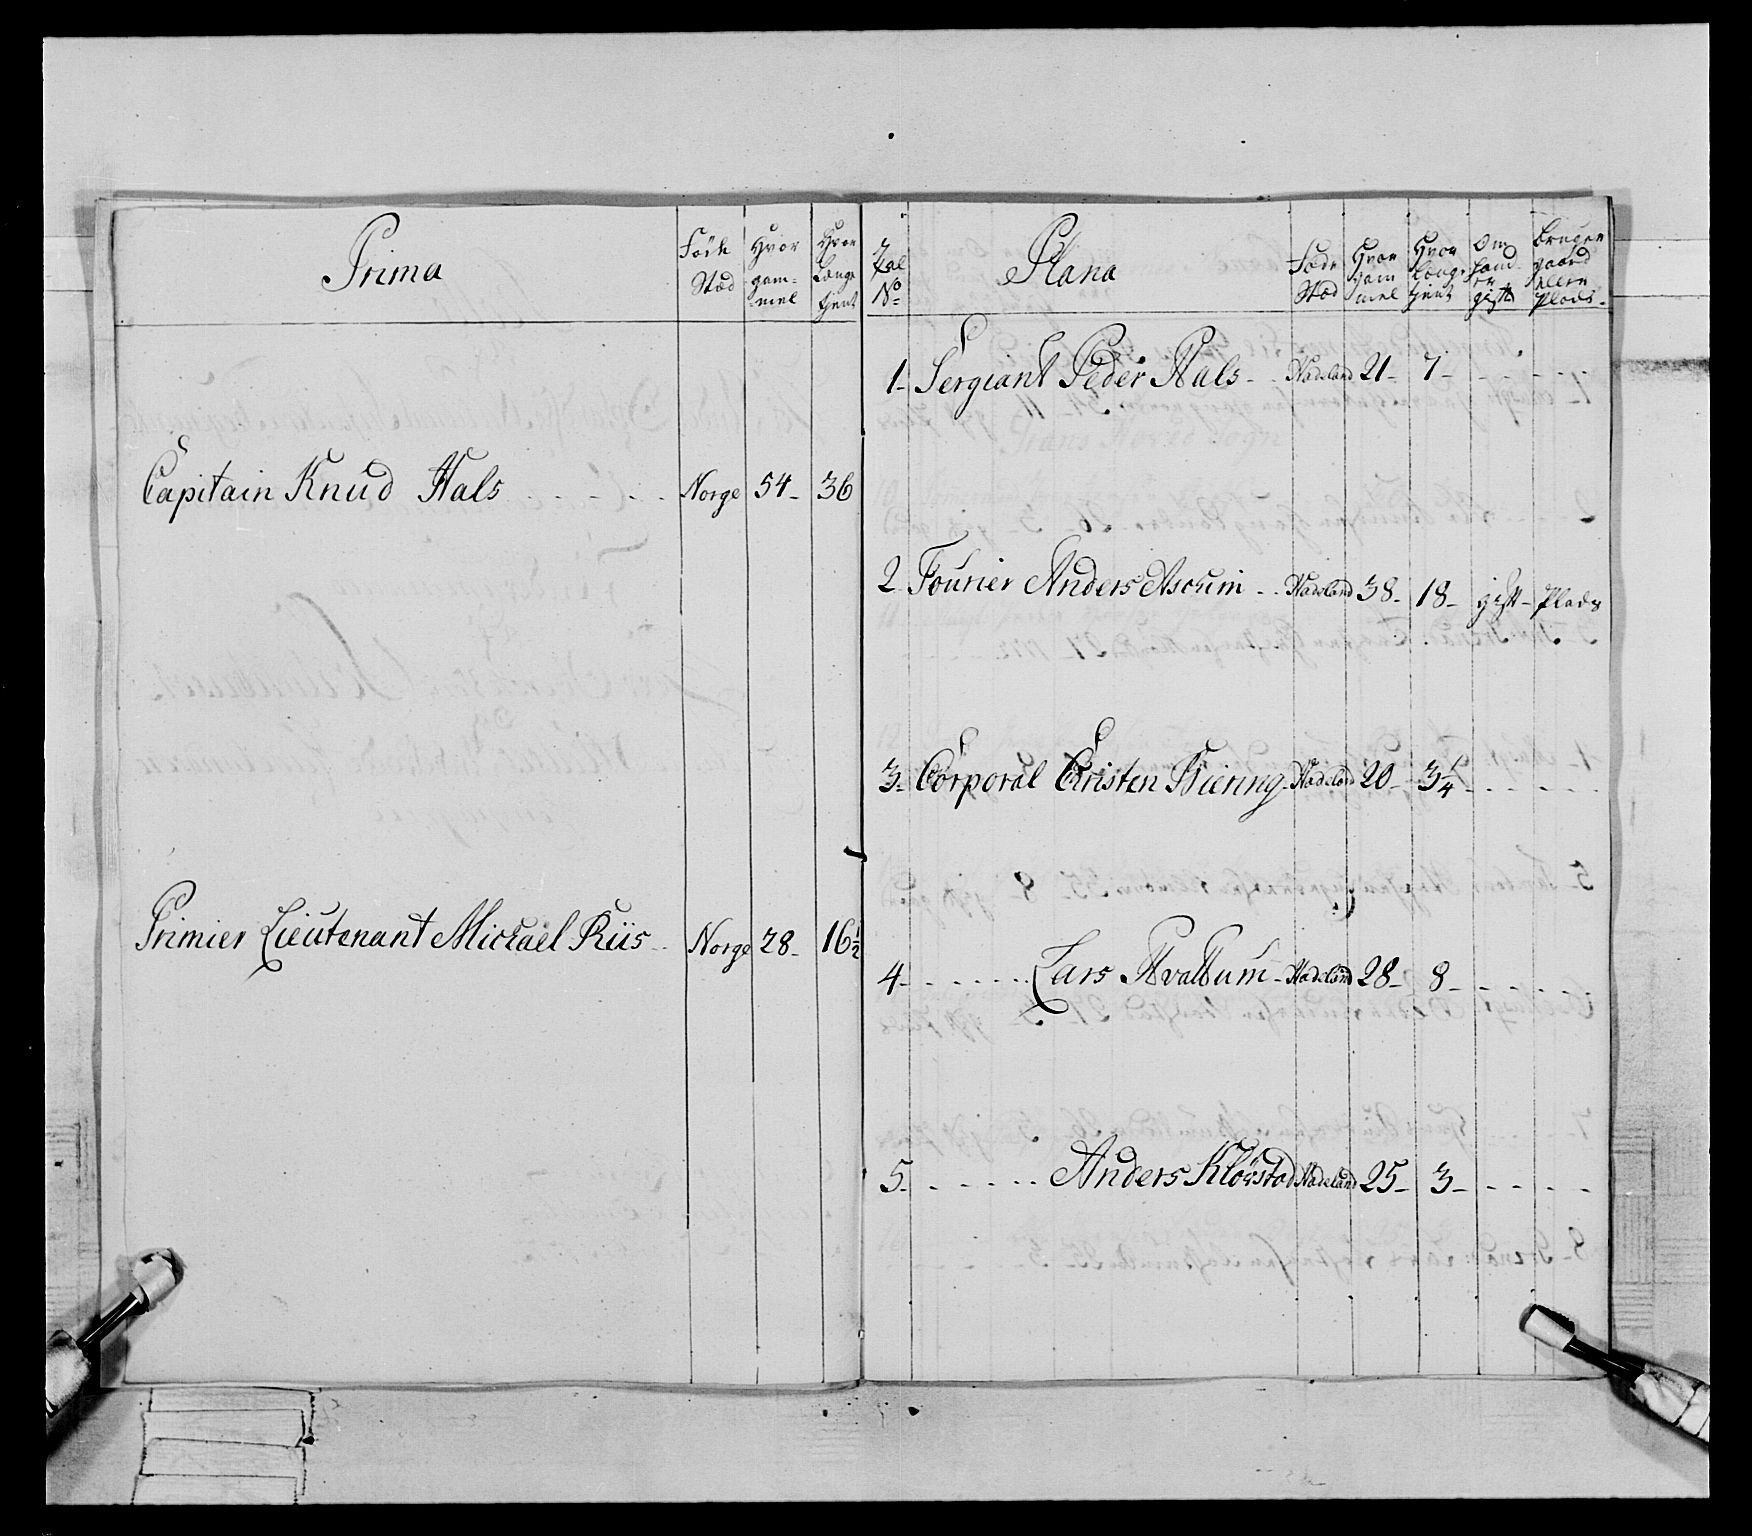 Prima
Føde Stæd
Hvor gam- mel
Hvor Længe tjent
Capitain Knud Hals . . - . . Norge 54- 36
Primier Lieutenant Michael Riis . . Norge 28- 16 1/2
Tal No
Plana
Føde Stæd
Hvor gam mel
Hvor længe tjent
Om hand er gift
bruger gaard eller Plads.
1- Sergiant Peder Hals - . Hadeland 21- 7- - - - - -
2 Fourier Anders Aschim - . Hadeland 38- 18- gift- Plads
3- Corporal Christen Biering- Hadeland 20- 3 1/4 - - - - -
4- - - - - - Lars Hvattum- Hadeland 28- 8- - - - -
5- - - - - - Anders Kløvstad Hadeland 25- 3- - - - -